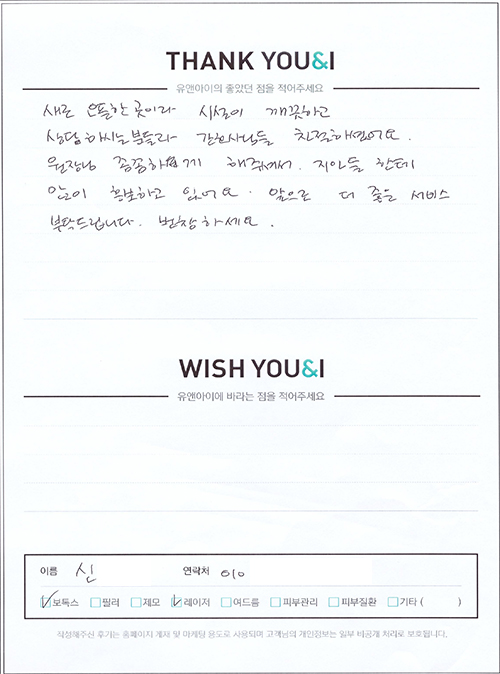 THANK YOU&I
유앤아이의 좋았던 점을 적어주세요
새로 오픈한 곳이라 시설이 깨끗하고
상담하시는 분들과 간호사님들 친절하셨어요.
원장님 꼼꼼하게 해주셔서. 지인들 한테
많이 홍보하고 있어요. 앞으로 더 좋은 서비스
부탁드립니다. 번창하세요.
WISH YOU&I
유앤아이에 바라는 점을 적어주세요
이름 신 연락처 010
보톡스 필러 제모 레이저 여드름 피부관리 피부질환 기타 ( )
작성해주신 후기는 홈페이지 게재 및 마케팅 용도로 사용되며 고객님의 개인정보는 일부 비공개 처리로 보호됩니다.